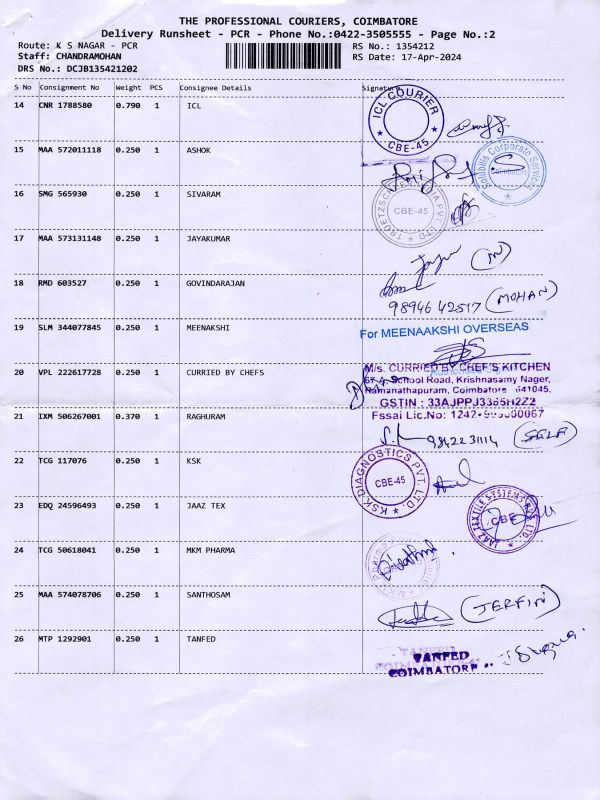 THE PROFESSIONAL COURIERS, COIMBATORE
Delivery Runsheet - PCR - Phone No.:0422-3505555 - Page No.:2
Route: K S NAGAR - PCR
RS No.: 1354212
Staff: CHANDRAMOHAN
RS Date: 17-Apr-2024
DRS No.: DCJB135421202
S No Consignment No Weight PCS Consignee Details Signature
14 CNR 1788580 0.790 1 ICL
ICL COURIER
* CBE-45 *
15 MAA 572011118 0.250 1 ASHOK
Corporate Services
Coimbatore
16 SMG 565930 0.250 1 SIVARAM
CBE-45
INDIA PVT. LTD
17 MAA 573131148 0.250 1 JAYAKUMAR
18 RMD 603527 0.250 1 GOVINDARAJAN
98946 42517 (MOHAN)
19 SLM 344077845 0.250 1 MEENAKSHI
For MEENAAKSHI OVERSEAS
20 VPL 222617728 0.250 1 CURRIED BY CHEFS
M/s. CURRIED BY CHEF'S KITCHEN
School Road, Krishnasamy Nager,
Ramanathapuram, Coimbatore 641045.
GSTIN : 33AJPPJ3365H2Z2
Fssai Lic.No: 1242
21 IXM 506267001 0.370 1 RAGHURAM
9842231114 (SELF)
22 TCG 117076 0.250 1 KSK
KSK DIAGNOSTICS PVT. LTD.
CBE-45
23 EDQ 24596493 0.250 1 JAAZ TEX
JAAZ TEXTILE SYSTEMS PVT. LTD.
CBE
24 TCG 50618041 0.250 1 MKM PHARMA
25 MAA 574078706 0.250 1 SANTHOSAM
(JERFIN)
26 MTP 1292901 0.250 1 TANFED
TANFED
COIMBATORE